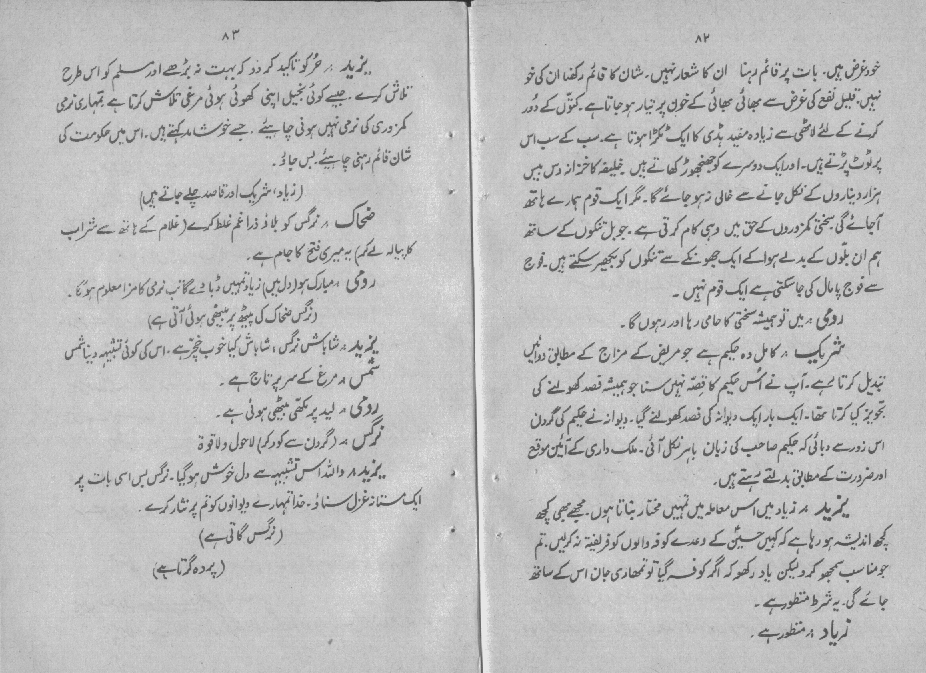 ۸۲
خود غرض ہیں۔ بات پر قائم رہنا ان کا شعار نہیں۔ شان کا قائم رکھنا ان کی خو
نہیں۔ قلیل نفع کی غرض سے بھائی بھائی کے خون پر تیار ہو جاتا ہے۔ کتوں کے دُور
کرنے کے لئے لاٹھی سے زیادہ مفید ہڈی کا ایک ٹکڑا ہوتا ہے۔ سب کے سب اس
پر ٹوٹ پڑتے ہیں۔ اور ایک دوسرے کو جھنجھوڑ کھاتے ہیں خلیفہ کا خزانہ دس بیس
ہزار دیناروں کے نکل جانے سے خالی نہ ہو جائے گا۔ مگر ایک قوم ہمارے ہاتھ
آجائے گی سختی کمزوروں کے حق میں وہی کام کرتی ہے۔ جو بل تنکوں کے ساتھ
ہم ان بلوں کے بدلے ہوا کے ایک جھونکے سے تنکوں کو بکھیر سکتے ہیں۔ فوج
سے فوج پامال کی جا سکتی ہے ایک قوم نہیں۔
رومی :۔ میں تو ہمیشہ سختی کا حامی رہا اور رہوں گا۔
شریک :۔ کامل وہ حکیم ہے جو مریض کے مزاج کے مطابق دوائیں
تبدیل کرتا رہے۔ آپ نے اُس حکیم کا قصّہ نہیں سنا جو ہمیشہ فصد کھولنے کی
تجویز کیا کرتا تھا۔ ایک بار ایک دیوانہ کی فصد کھولنے گیا۔ دیوانہ نے حکیم کی گردن
اس زور سے دبائی کہ حکیم صاحب کی زبان باہر نکل آئی۔ ملک داری کے آئین موقع
اور ضرورت کے مطابق بدلتے رہتے ہیں۔
یزید :۔ زیاد میں اس معاملہ میں تمہیں مختار بناتا ہوں۔ مجھے بھی کچھ
کچھ اندیشہ ہو رہا ہے کہ کہیں حسینؑ کے وعدے کوفہ والوں کو فریفتہ نہ کر لیں۔ تم
جو مناسب سمجھو کرو لیکن یاد رکھو کہ اگر کوفہ گیا تو تمھاری جان اس کے ساتھ
جائے گی۔ یہ شرط منظور ہے۔
زیاد :۔ منظور ہے۔
۸۳
یزید :۔ حُر کو تاکید کر دو کہ بہت نہ بڑھے اور مسلم کو اس طرح
تلاش کرے۔ جیسے کوئی بخیل اپنی کھوئی ہوئی مرغی تلاش کرتا ہے تمہاری نرمی
کمزوری کی نرمی نہیں ہونی چاہیئے۔ جسے خوشامد کہتے ہیں۔ اس میں حکومت کی
شان قائم رہنی چاہیئے۔ بس جاؤ۔
(زیاد، شریک اور قاصد چلے جاتے ہیں)
ضحاک :۔ نرگس کو بلاؤ ذرا غم غلط کرے (غلام کے ہاتھ سے شراب
کا پیالہ لے کر) یہ میری فتح کا جام ہے۔
رومی :۔ مبارک ہو (دل میں) زیاد تمہیں ڈبا دے گا تب نرمی کا مزا معلوم ہوگا۔
(نرگس ضحاک کی پیٹھ پر بیٹھی ہوئی آتی ہے)
یزید :۔ شاباش نرگس، شاباش کیا خوب خچر ہے۔ اس کی کوئی تشبیہہ دینا شمس
شمس :۔ مرغ کے سر پر تاج ہے۔
رومی :۔ لید پر مکھی بیٹھی ہوئی ہے۔
نرگس :۔ (گردن سے کود کر) لاحول ولا قوۃ
یزید :۔ واللہ اس تشبیہہ سے دل خوش ہو گیا۔ نرگس بس اسی بات پر
ایک مستانہ غزل سناؤ۔ خدا تمہارے دیوانوں کو تم پر نثار کرے۔
(نرگس گاتی ہے)
(پردہ گرتا ہے)